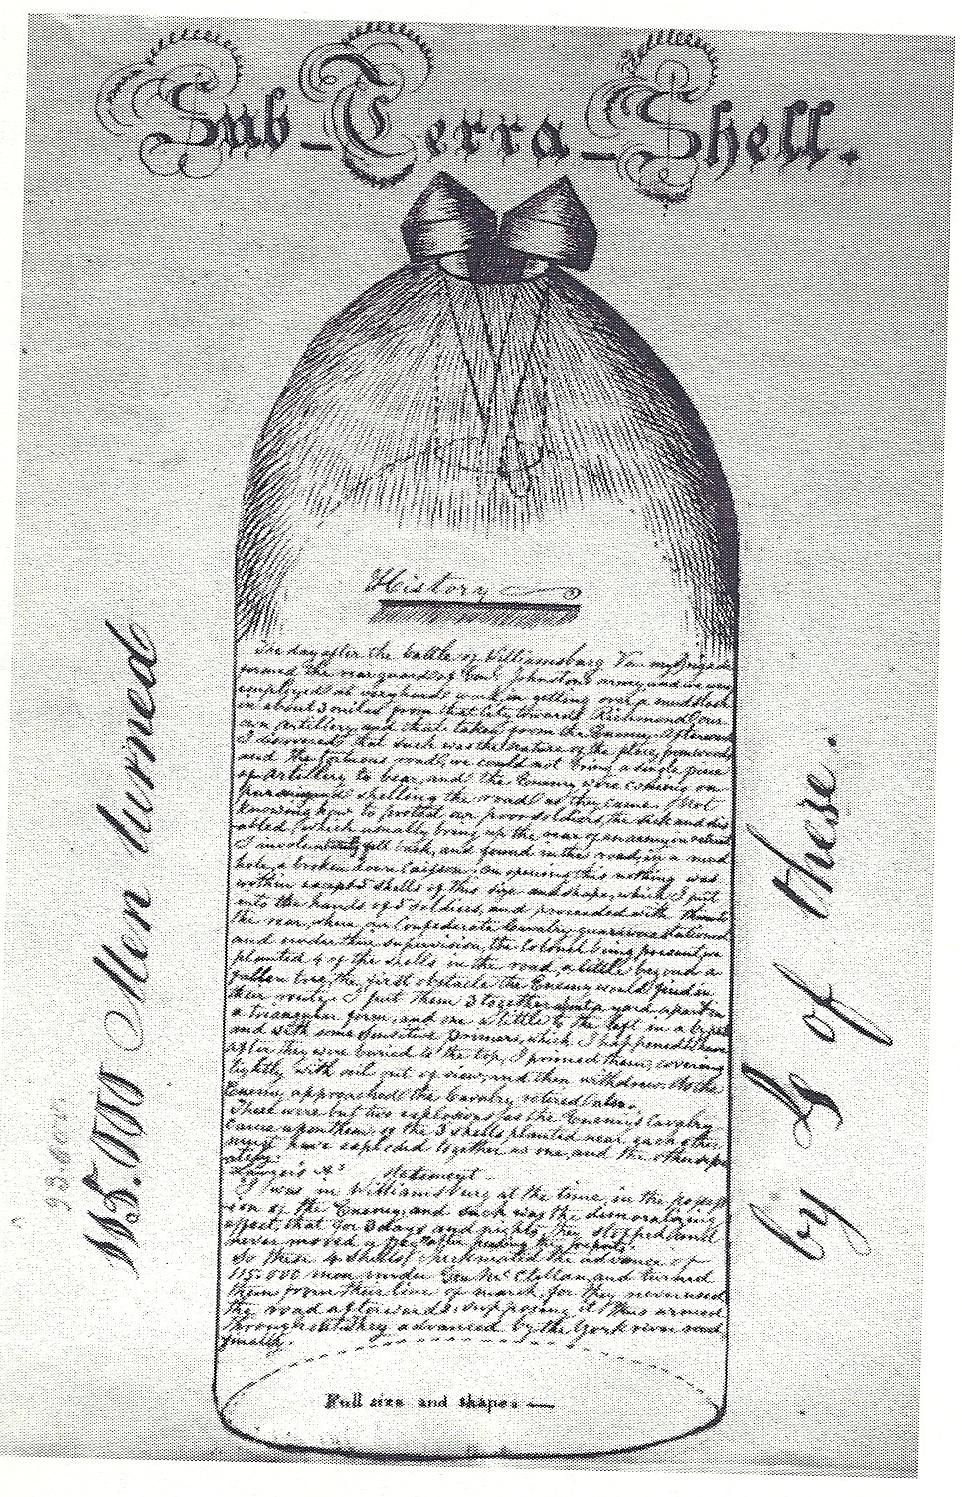 Sub-Terra-Shell.
History
The day after the battle of Williamsburg Va. my Brigade
formed the rear guard of Genl. Johnston's army and we were
employed at very hard work in getting over a mud slash
in about 3 miles from that City towards Richmond, our
own artillery, and that taken from the Enemy. Afterward
I discovered that such was the nature of the place, from woods
and the tortuous road, we could not bring a single piece
of Artillery to bear, and the Enemy were coming on
pursuing and shelling the road as they came. Not
knowing how to protect our poor soldiers, the sick and dis
abled (which usually bring up the rear of an army on retreat
I involuntarily fell back, and found in the road, in a mud
hole, a broken down Caisson. On opening this nothing was
within except 5 shells of this size and shape, which I put
into the hands of 5 soldiers, and proceeded with them to
the rear, where our Confederate Cavalry guard was stationed
and under the supervision, the Colonel being present, we
planted 4 of the shells in the road, a little beyond a
fallen tree, the first obstacle the Enemy would find in
their route. I put them 3 together about a yard apart in
a triangular form, and one a little to the left in a by
and with some sensitive primers, which I happened to have
after they were buried to the top, I primed them, covering
lightly with soil out of view, and then withdrew. As the
Enemy approached the Cavalry retired also.
There were but two explosions as the Enemy's Cavalry
came upon them, of the 3 shells planted near each other
must have exploded together as one, and the other
Statement
I was in Williamsburg at the time, in the possess
ion of the Enemy, and such was the demoralizing
effect, that for 3 days and nights they stopped and
never moved a
So these 4 Shells checkmated the advance of
115,000 men under Gen Mc Clellan and turned
them from their line of march for they never used
the road afterwards, supposing it thus armed
throughout. They advanced by the York river road
finally.
Full size and shape
115,000 Men turned
by 4 of these.